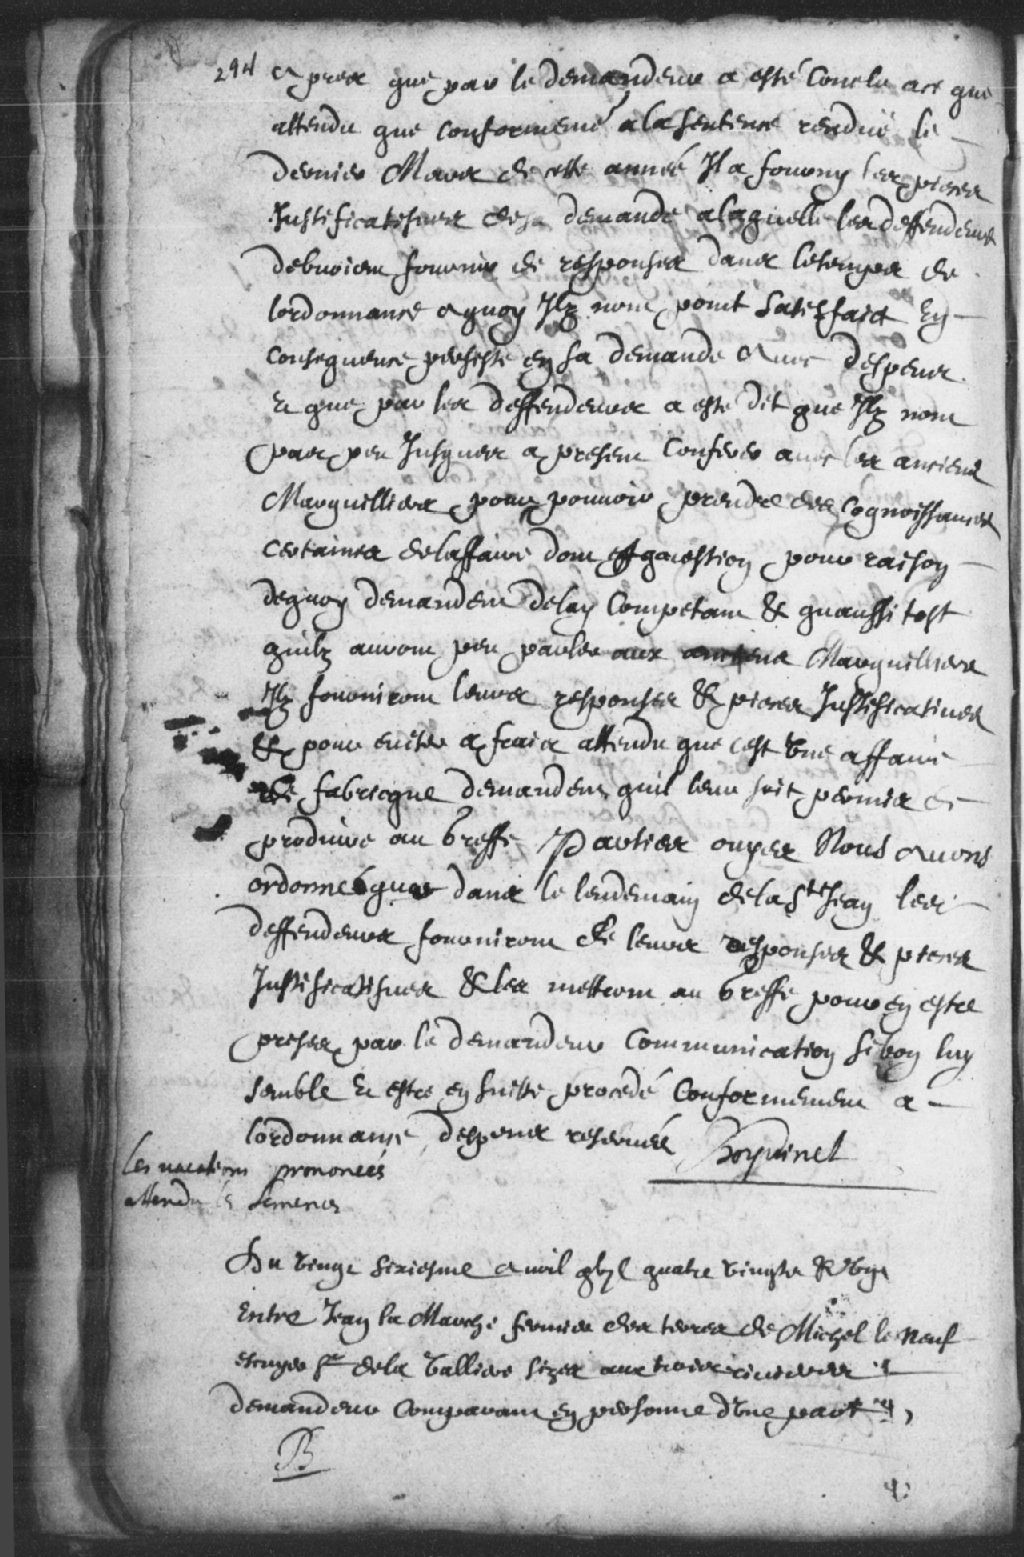 294
Apres que par le demandeur a esté Conclu ace que
attendu que conformemt a la sentence rendüe le
dernier Mars de cette année Il a fourny les pieces
Justificatifves de sa demande a laquelle les deffendeurs
debuoient fournir de responses dans le temps de
lordonnance a quoy Ilz nont point Satisfaict En
consequence persiste en sa demande Auec despens
Et que par les deffendeurs a esté dit que Ilz nont
pas peu Jusques a present Conferer auec les anciens
Marguilliers pour pouuoir prendre des cognoissances
certaines de laffaire dont est question pour raison
dequoy demandent delay Competant & quaussi tost
quilz auront peu parler aux anciens Marguilliers
Ilz fourniront leurs responses & pieces Justificatiues
& pour euiter a fraix attendu que cest Vne affaire
de fabricque demandent quil leur soit permis de
produire au Greffe Parties ouyes Nous Auons
ordonné que dans le lendemain de la St Jean les
deffendeurs fourniront de leurs responses & pieces
Justificatifues & les mettront au Greffe pour en estre
prises par le demandeur Communication si bon luy
semble Et estre en suitte procedé Conformement a
lordonnance, despens reserués Boyvinet
Les vacations prononcées
attendu les semences
Du Vingt sixiesme Auril gbjC quatre Vingts & Vng
Entre Jean la Marche fermier des terres de Michel le Neuf
escuyer Sr de la Valliere sizes aux trois riuieres
demandeur Comparant en personne d'Vne part
B